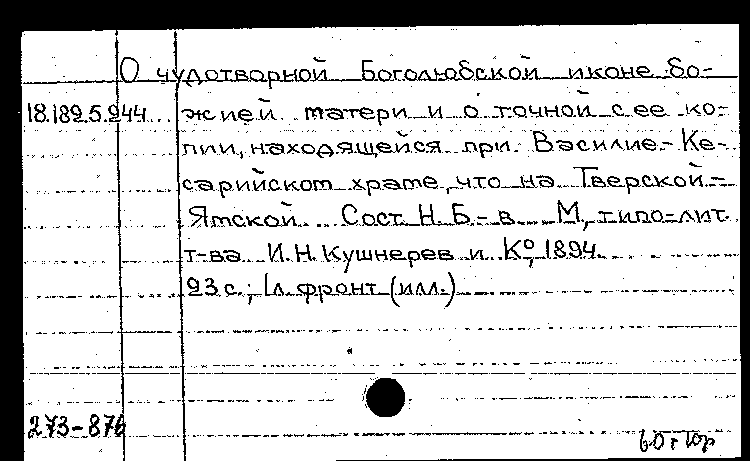 О чудотворной Боголюбской иконе бо-
18.189.5.244 жией матери и о точной с ее ко-
пии, находящейся при Василие-Ке-
сарийском храме, что на Тверской-
Ямской. Сост. Н. Б-в. М, типо-лит.
т-ва И. Н. Кушнерев и К°, 1894.
93 с.; 1 л. фронт (илл.)
273-876